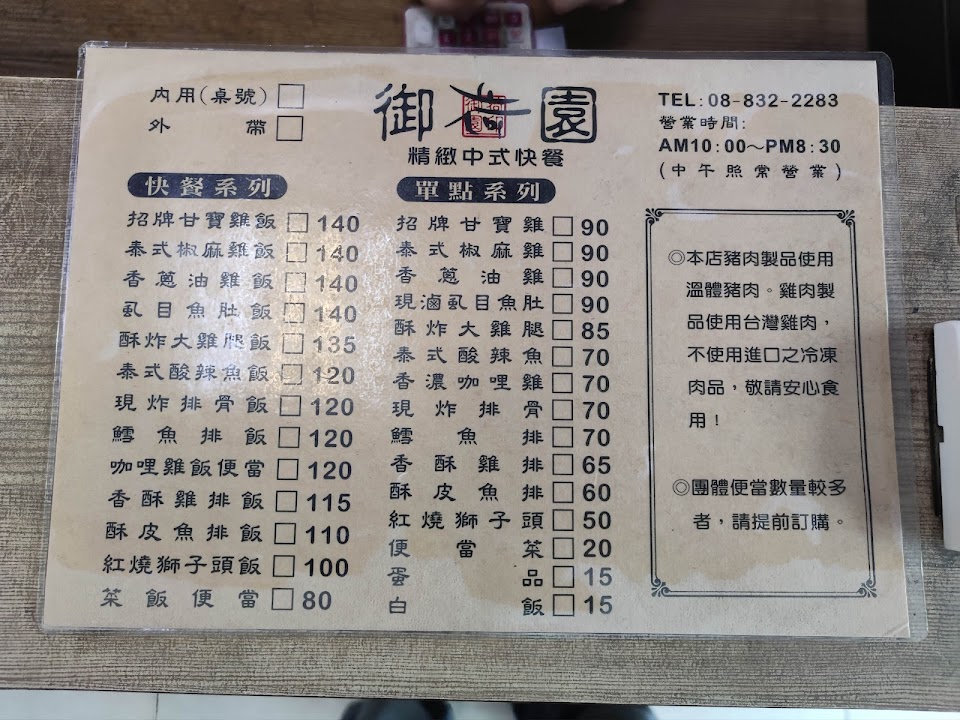 內用(桌號)□
外帶□
御 園
精緻中式快餐
TEL:08-832-2283
營業時間:
AM10:00～PM8:30
(中午照常營業)
快餐系列
招牌甘寶雞飯□140
泰式椒麻雞飯□140
香蔥油雞飯□140
虱目魚肚飯□140
酥炸大雞腿飯□135
泰式酸辣魚飯□120
現炸排骨飯□120
鱈魚排飯□120
咖哩雞飯便當□120
香酥雞排飯□115
酥皮魚排飯□110
紅燒獅子頭飯□100
菜飯便當□80
單點系列
招牌甘寶雞□90
泰式椒麻雞□90
香蔥油雞□90
現滷虱目魚肚□90
酥炸大雞腿□85
泰式酸辣魚□70
香濃咖哩雞□70
現炸排骨□70
鱈魚排□70
香酥雞排□65
酥皮魚排□60
紅燒獅子頭□50
便當菜□20
蛋品□15
白飯□15
◎本店豬肉製品使用
溫體豬肉。雞肉製
品使用台灣雞肉，
不使用進口之冷凍
肉品，敬請安心食
用！
◎團體便當數量較多
者，請提前訂購。